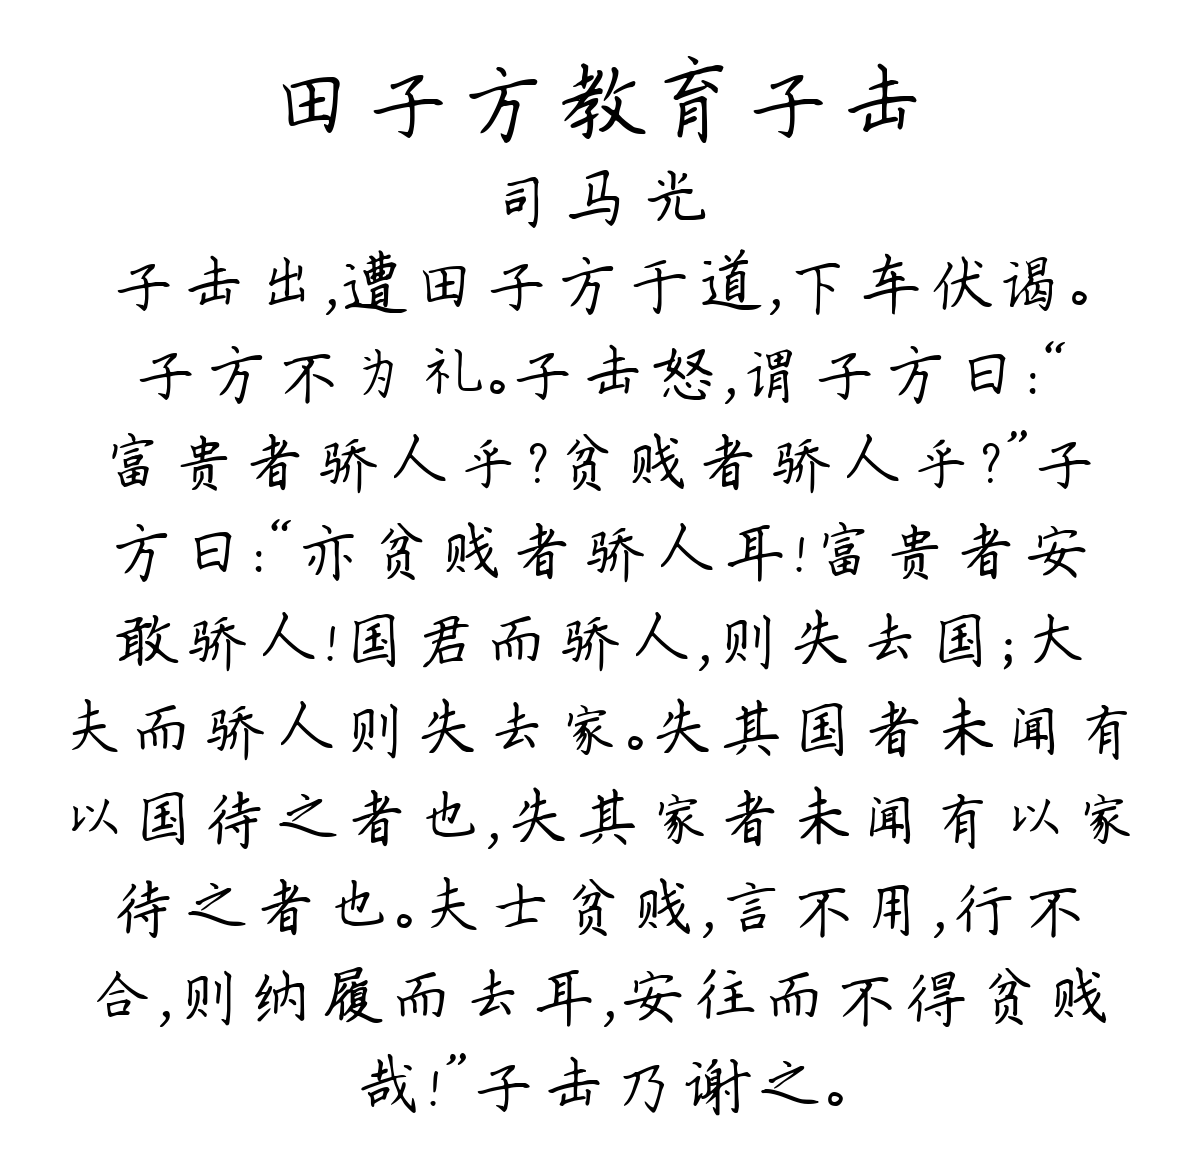 田子方教育子击
司马光
子击出,遭田子方于道,下车伏谒。
子方不为礼。子击怒,谓子方曰:“
富贵者骄人乎?贫贱者骄人乎?”子
方曰:“亦贫贱者骄人耳!富贵者安
敢骄人!国君而骄人,则失去国;大
夫而骄人则失去家。失其国者未闻有
以国待之者也,失其家者未闻有以家
待之者也。夫士贫贱,言不用,行不
合,则纳履而去耳,安往而不得贫贱
哉!”子击乃谢之。